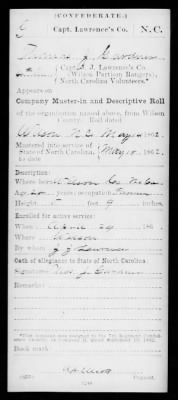 (CONFEDERATE.)
G Capt. Lawrence's Co. N.C.
J. Gardner
Capt. J. J. Lawrence's Co.
(Wilson Partisan Rangers)
North Carolina Volunteers.*
Appears on
Company Muster-in and Descriptive Roll
of the organization named above, from Wilson
county. Roll dated
Wilson N.C. May 10, 1862.
Mustered into service of
State of North Carolina, May 10, 1862.
to date
Description:
Where born Wilson Co. N.C.
Age 20 years; occupation Farmer
Height 5 feet 9 inches.
Enrolled for active service:
When April 29, 186
Where Wilson
By whom J. J. Lawrence
Oath of allegiance to State of North Carolina
Signature J. Gardner
Remarks:
Book mark:
Copyist.